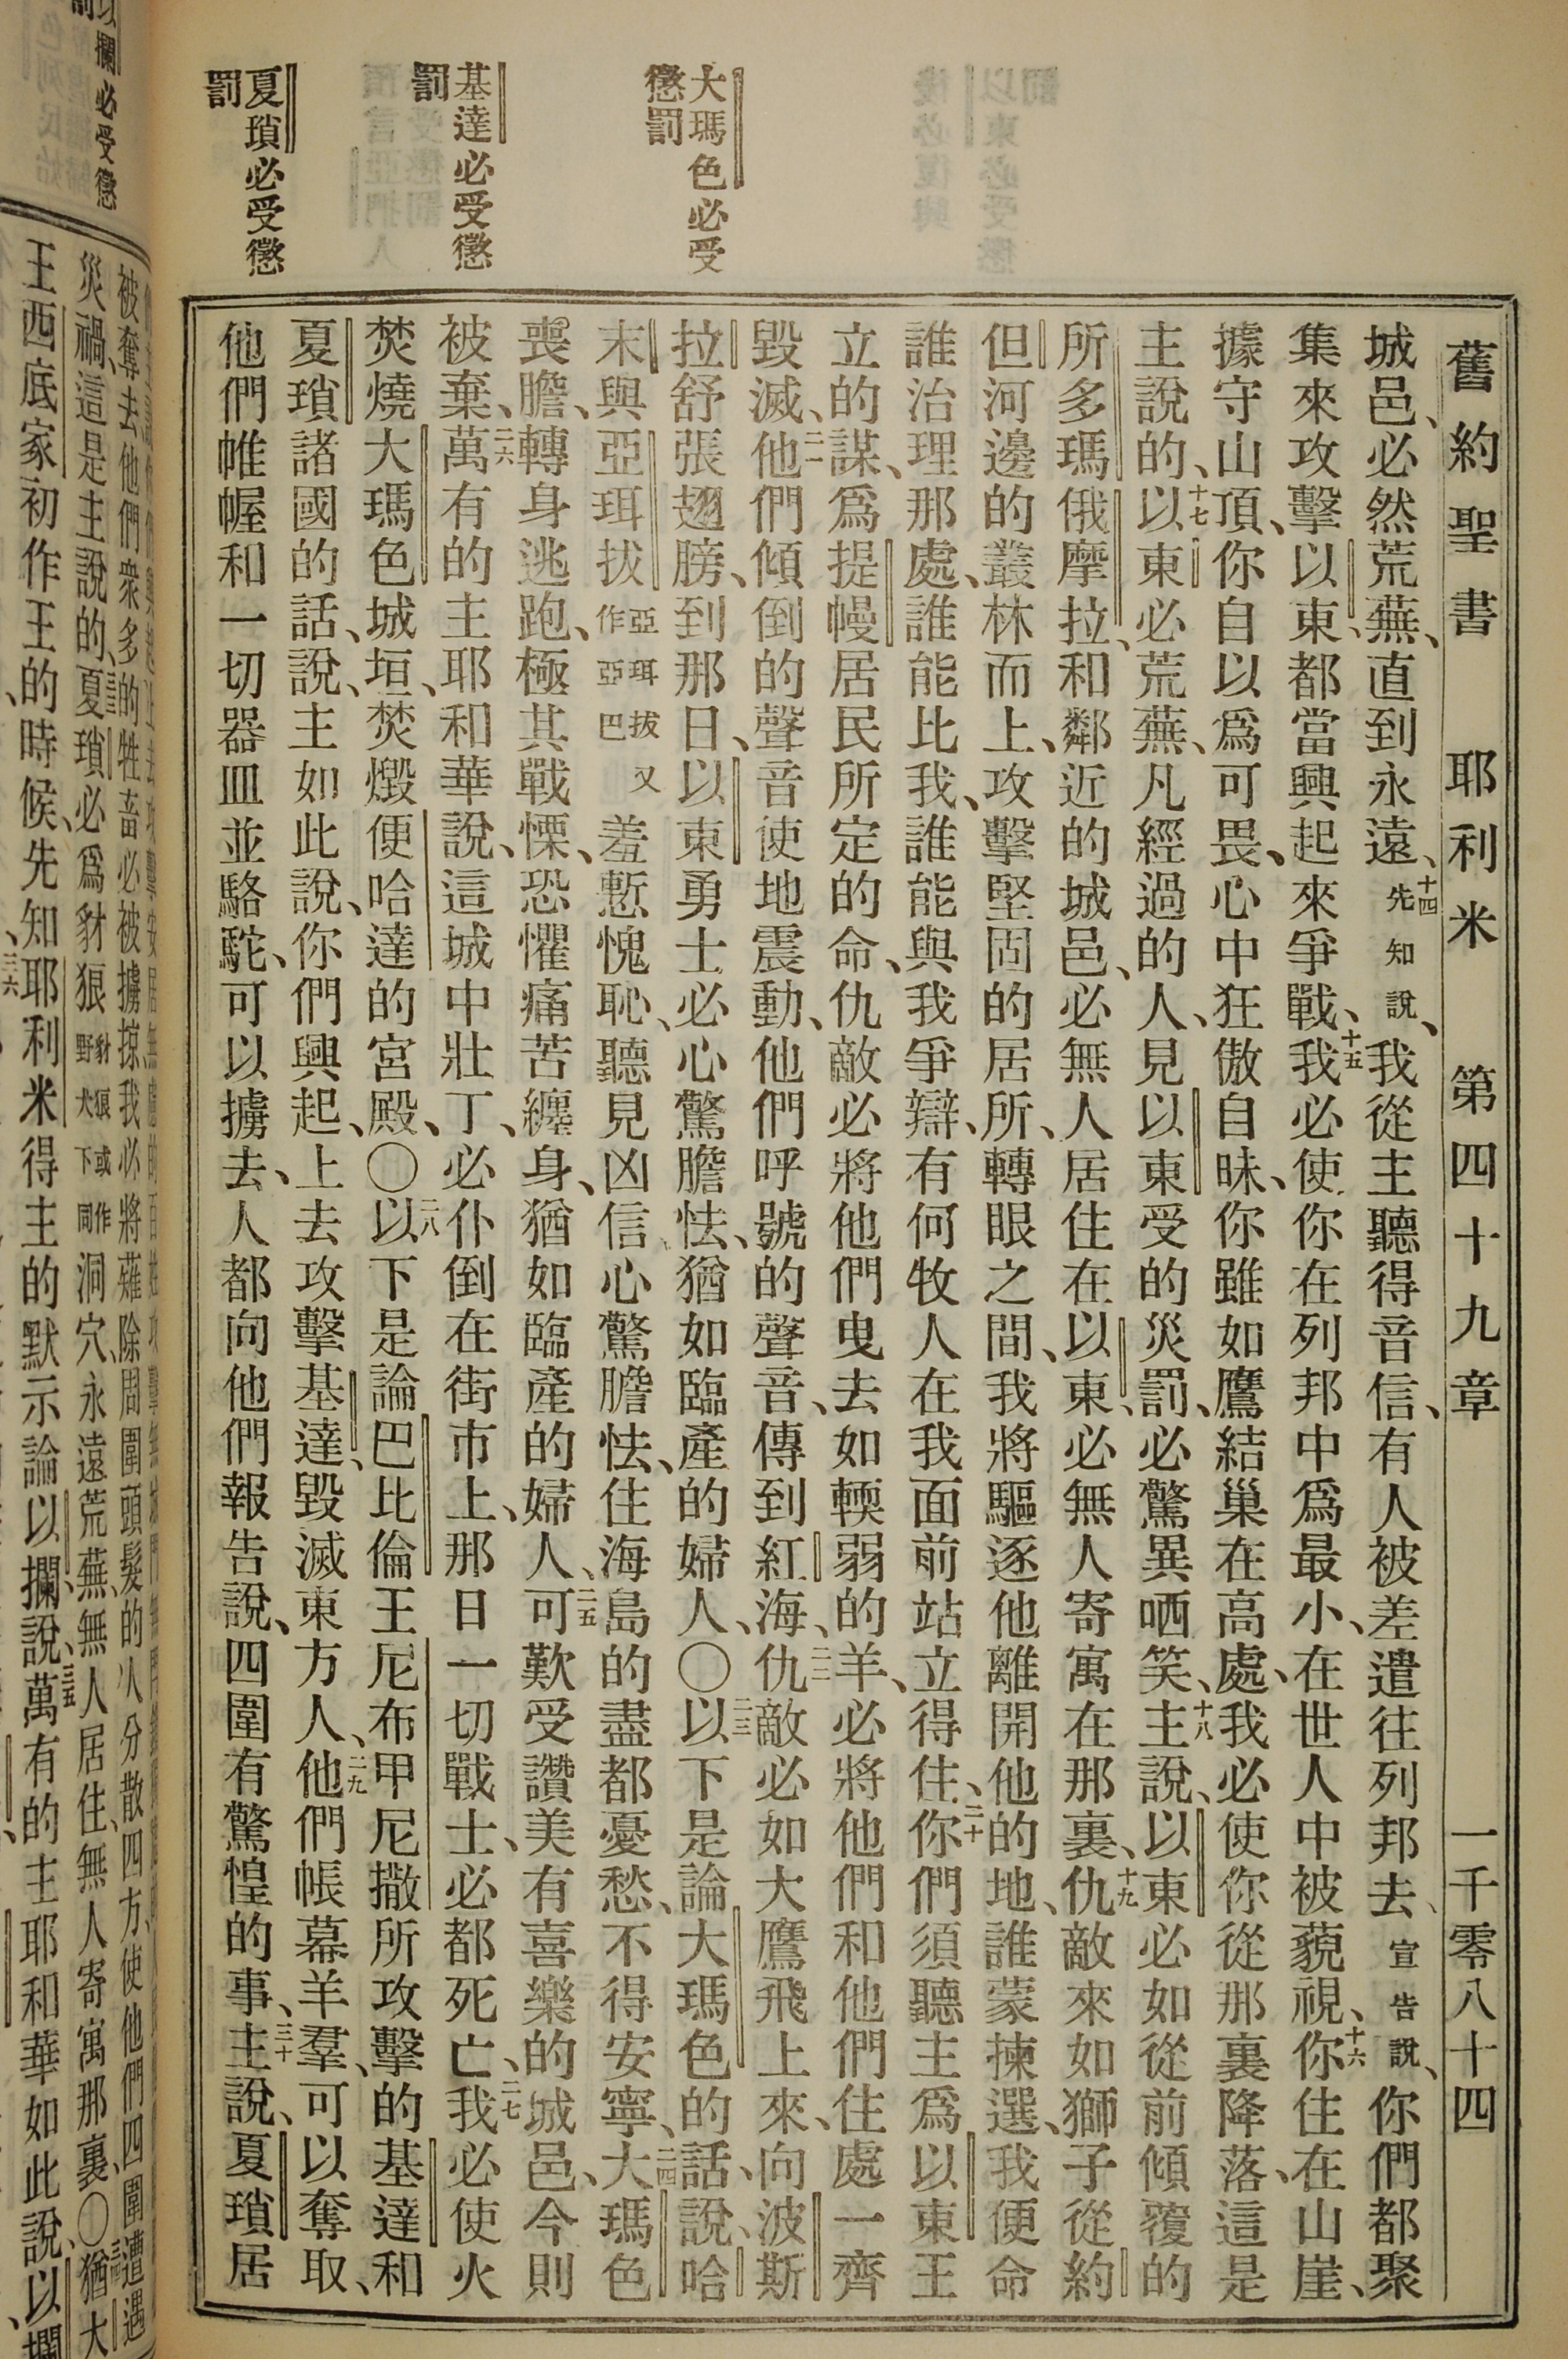 舊約聖書 耶利米 第四十九章 一千零八十四
城邑、必然荒蕪、直到永遠、十四先知說、我從主聽得音信、有人被差遣往列邦去、宣告說、你們都聚
集來攻擊以東、都當興起來爭戰、十五我必使你在列邦中爲最小、在世人中被藐視、十六你住在山崖、
據守山頂、你自以爲可畏、心中狂傲自昧、你雖如鷹結巢在高處、我必使你從那裏降落、這是
主說的、十七以東必荒蕪、凡經過的人、見以東受的災罰、必驚異哂笑、十八主說、以東必如從前傾覆的
所多瑪俄摩拉、和鄰近的城邑、必無人居住在以東、必無人寄寓在那裏、十九仇敵來如獅子從約
但河邊的叢林而上、攻擊堅固的居所、轉眼之間、我將驅逐他離開他的地、誰蒙揀選、我便命
誰治理那處、誰能比我、誰能與我爭辯、有何牧人在我面前站立得住、二十你們須聽主爲以東王
立的謀、爲提幔居民所定的命、仇敵必將他們曳去如輭弱的羊、必將他們和他們住處一齊
毀滅、二一他們傾倒的聲音使地震動、他們呼號的聲音、傳到紅海、二二仇敵必如大鷹飛上來、向波斯
拉舒張翅膀、到那日、以東勇士必心驚膽怯、猶如臨產的婦人、〇二三以下是論大瑪色的話說、哈
末與亞珥拔亞珥拔又作亞巴羞慙愧恥、聽見凶信心驚膽怯、住海島的盡都憂愁、不得安寧、二四大瑪色
喪膽、轉身逃跑、極其戰慄、恐懼痛苦纏身、猶如臨產的婦人、二五可歎受讚美有喜樂的城邑、今則
被棄、二六萬有的主耶和華說、這城中壯丁、必仆倒在街市上、那日一切戰士、必都死亡、二七我必使火
焚燒大瑪色城垣、焚燬便哈達的宮殿、〇二八以下是論巴比倫王尼布甲尼撒所攻擊的基達和
夏瑣諸國的話、說、主如此說、你們興起、上去攻擊基達、毀滅東方人、二九他們帳幕羊羣、可以奪取、
他們帷幄和一切器皿並駱駝、可以擄去、人都向他們報告說、四圍有驚惶的事、三十主說、夏瑣居
大瑪色必受
懲罰
基達必受懲
罰
夏瑣必受懲
罰
以攔必受懲
罰
被奪去、他們衆多的牲畜必被擄掠、我必將薙除周圍頭髮的人分散四方、使他們四圍遭遇
災禍、這是主說的、三三夏瑣必爲豺狼豺狼或作野犬下同洞穴、永遠荒蕪、無人居住、無人寄寓那裏、〇三四猶大
王西底家初作王的時候、先知耶利米得主的默示論以攔說、三五萬有的主耶和華如此說、以攔